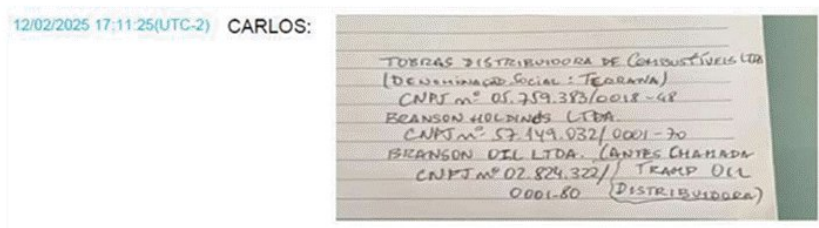 12/02/2025 17;11:25(UTC-2) CARLOS:
TOBRAS DISTRIBUIDORA DE COMBUSTÍVEIS LTDA
(DENOMINAÇÃO SOCIAL: TERRANA)
CNPJ nº 05.759.383/0018-48
BRANSON HOLDINGS LTDA.
CNPJ nº 57.149.032/0001-70
BRANSON OIL LTDA. (ANTES CHAMADA
CNPJ nº 02.824.322/ TRAMP OIL
0001-80 (DISTRIBUIDORA)